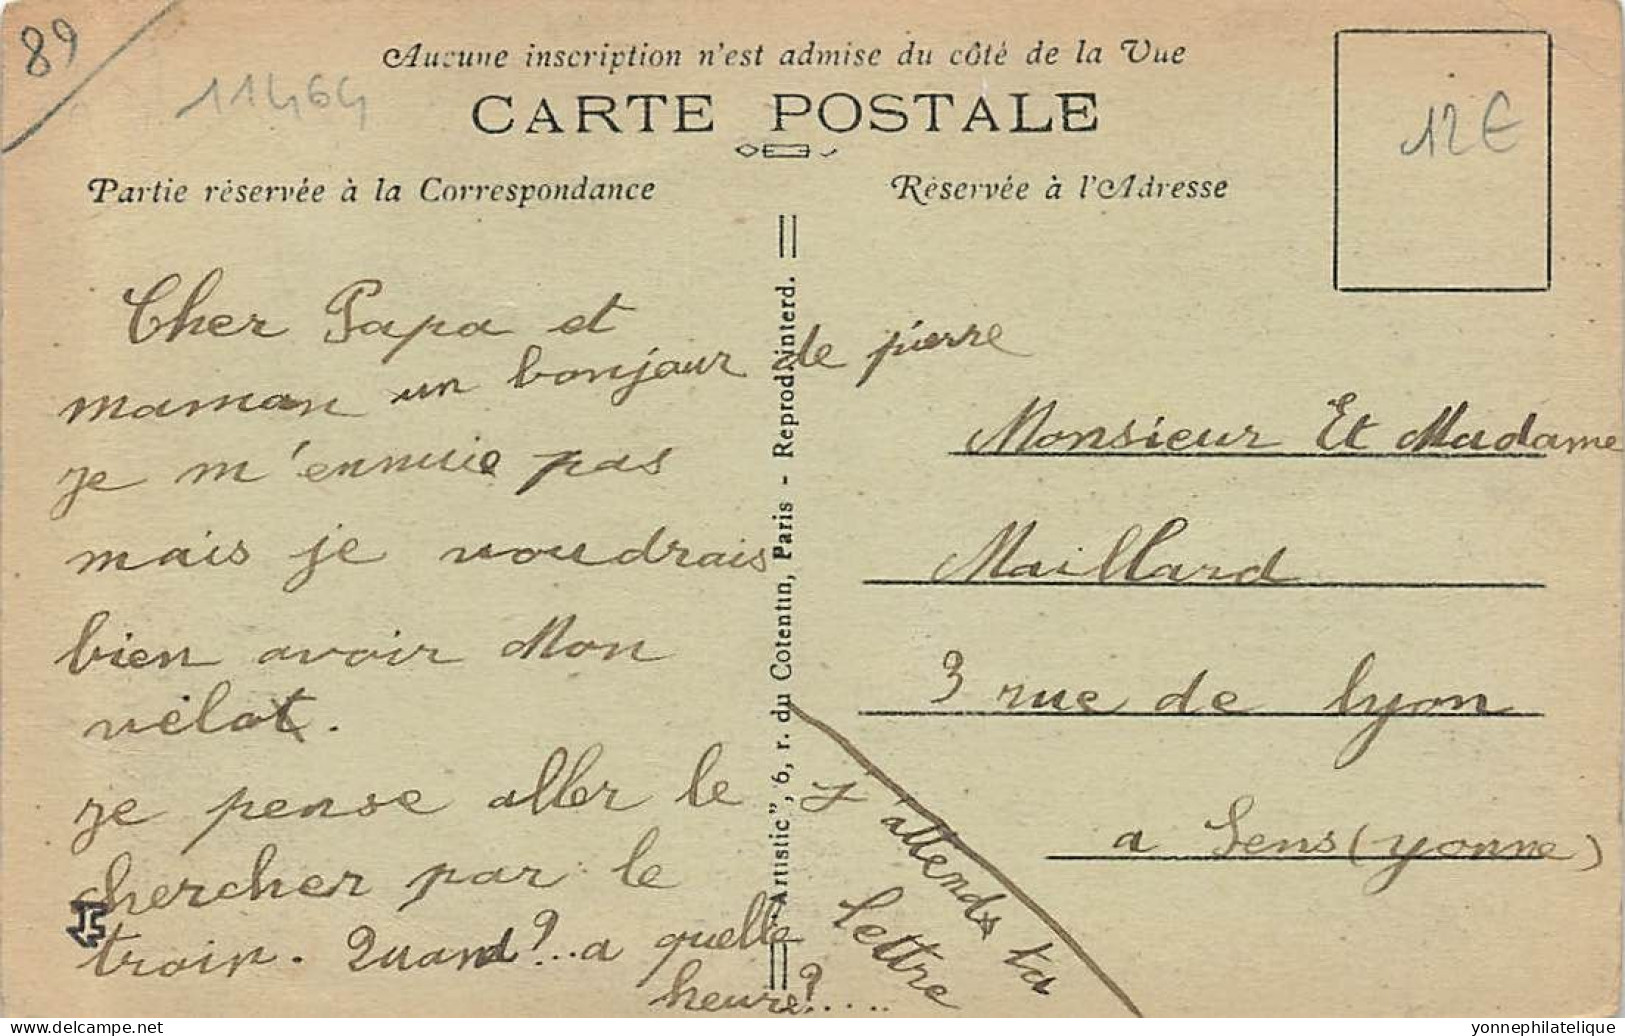 89
11464
Aucune inscription n'est admise du côté de la Vue
CARTE POSTALE
12€
Partie réservée à la Correspondance
Réservée à l'Adresse
Cher Papa et
maman un bonjour de pierre
je m'ennuie pas
mais je voudrais
bien avoir Mon
vélot.
je pense aller le
chercher par le
troin. Quand?...a quelle
heure?....
J'attends ta
lettre
"Artistic", 6, r. du Cotentin, Paris - Reprod. interd.
Monsieur Et Madame
Maillard
3 rue de lyon
a Sens (yonne)
delcampe.net
yonnephilatelique